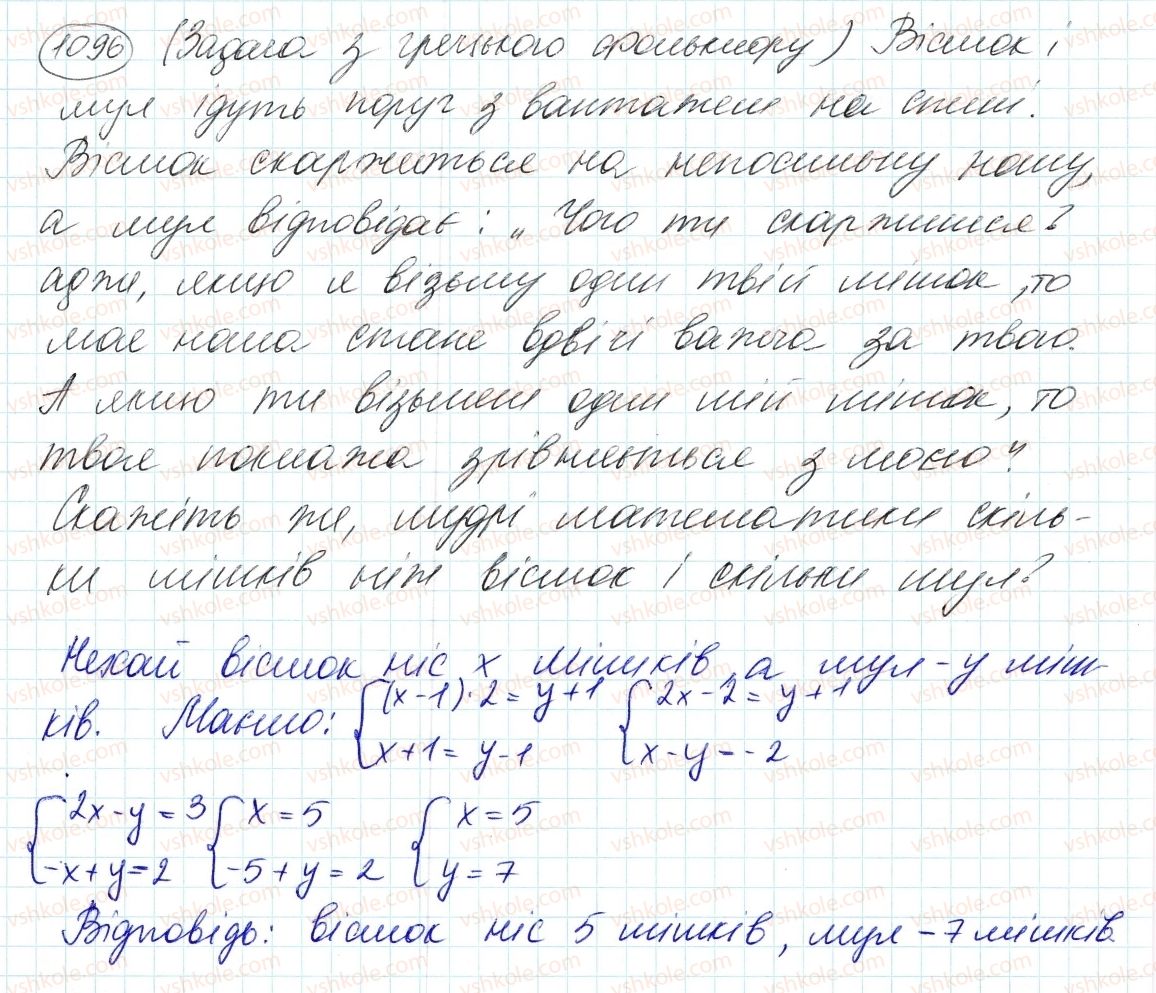 1096 (Задача з грецького фольклору) Віслюк і
мул ідуть поруч з вантажем на спині.
Віслюк скаржиться на непосильну ношу,
а мул відповідає: „Чого ти скаржишся?
адже, якщо я візьму один твій мішок, то
моя ноша стане вдвічі важча за твою.
А якщо ти візьмеш один мій мішок, то
твоя поклажа зрівняється з моєю".
Скажіть же, мудрі математики скіль-
ки мішків ніж віслюк і скільки мул?
Нехай віслюк ніс x мішків, а мул - y міш-
ків. Маємо: {(x-1)·2=y+1 {2x-2=y+1
x+1=y-1 x-y=-2
{2x-y=3 {x=5 {x=5
-x+y=2 -5+y=2 y=7
Відповідь: віслюк ніс 5 мішків, мул - 7 мішків.